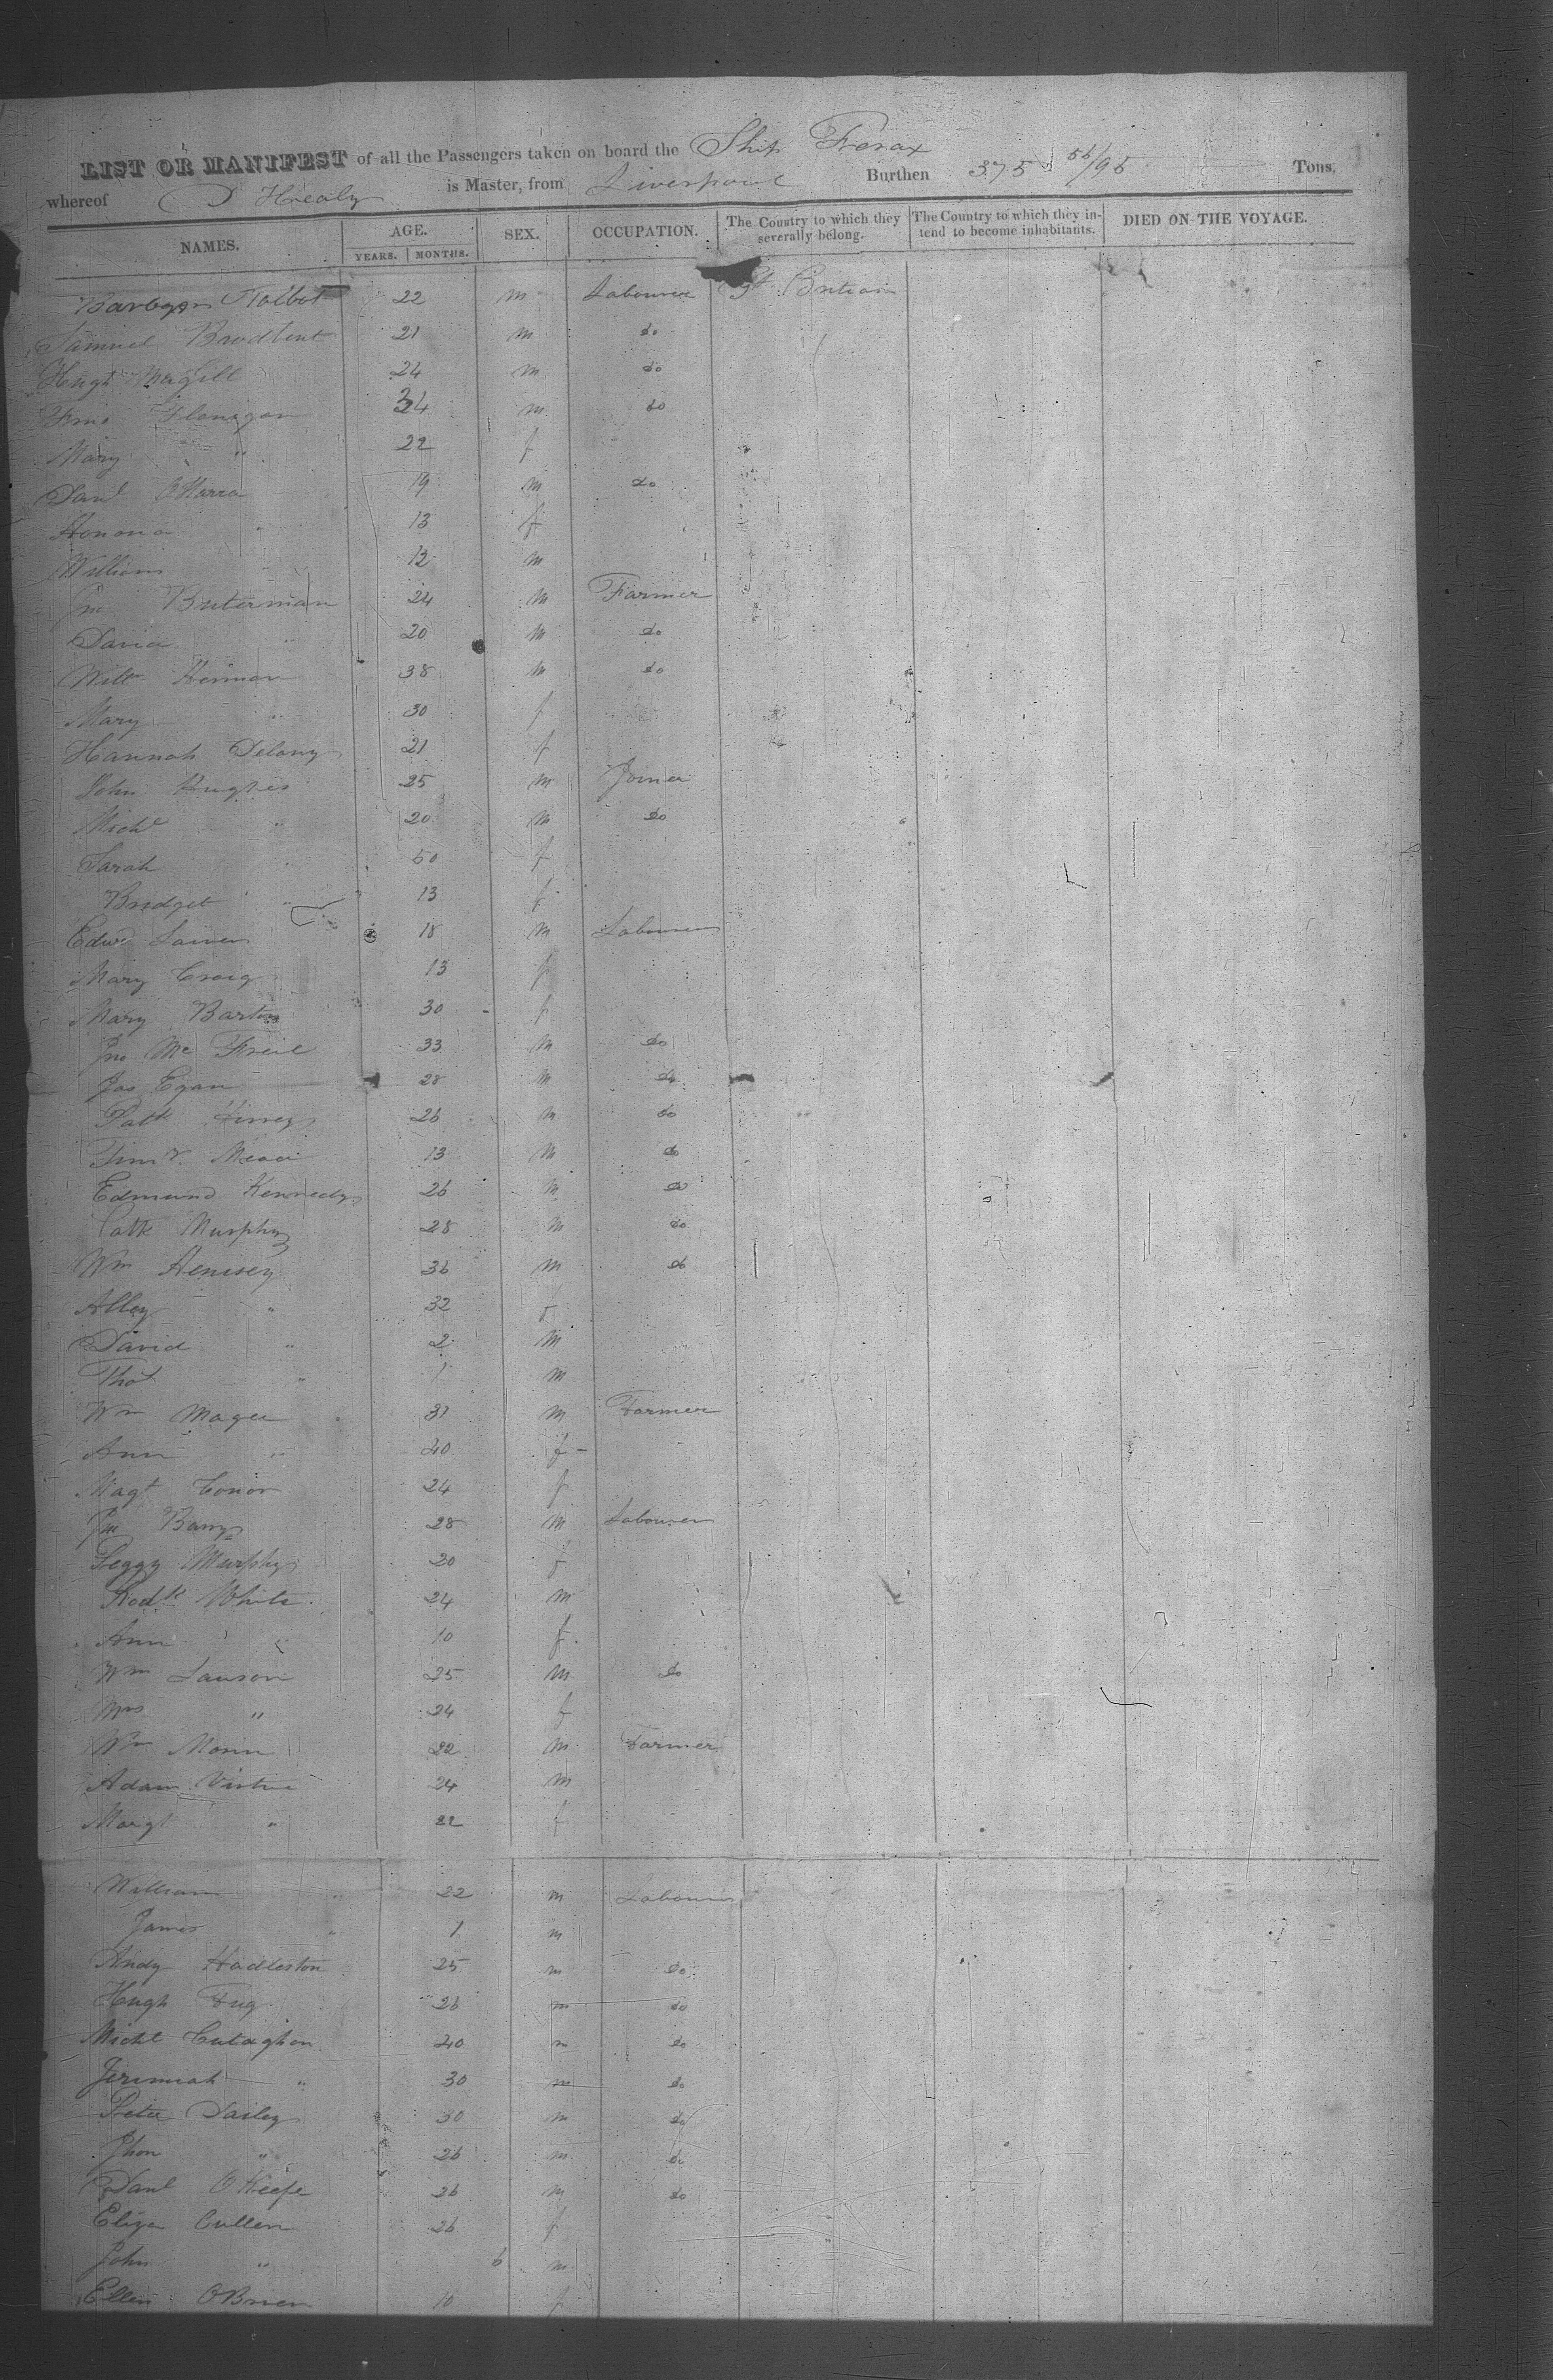 LIST OR MANIFEST of all the Passengers taken on board the Ship Ferax
whereof D Healy is Master, from Liverpool Burthen 375 56/95 Tons.
NAMES. AGE. SEX. OCCUPATION. The Country to which they severally belong. The Country to which they intend to become inhabitants. DIED ON THE VOYAGE.
YEARS. MONTHS.
Talbot 22 m Labourer Gt Britian
Samuel Brodbent 21 m do
Hugh Magill 24 m do
Flanagan 34 m do
Mary " 22 f
Danl OHarra 19 m do
Honora " 13 f
William " 12 m
Jno Buterman 24 m Farmer
David " 20 m do
Willm 38 m do
Mary " 30 f
Hannah Delany 21 f
John Hughes 25 m Joiner
Michl " 20 m do
Sarah " 50 f
Bridget " 13 f
Edwd 18 m Labourer
Mary Craig 13 f
Mary Barton 30 f
Jno Mc Freil 33 m do
Jas Egan 28 m do
Patk 26 m do
Timy. 13 m do
Edmund Kennedy 26 m do
Patk Murphy 28 m do
Wm Henisey 36 m do
Alley " 32 f
David " 2 m
Thos " 1 m
Wm Magee 31 m Farmer
Ann " 40 f
Magt Conor 24 f
Jno Barry 28 m Labourer
Peggy Murphy 20 f
Rodk White 24 m
Ann " 10 f
Wm Lauson 25 m do
Mrs " 24 f
Wm 22 m Farmer
Adam Virtue 24 m
Margt " 22 f
William " 22 m Labourer
James " 1 m
Andy Hadleston 25 m do
Hugh 26 m do
Michl Cutaghon 40 m do
Jeremiah " 30 m do
Peter Dailey 30 m do
Jhon " 26 m do
Danl OKeefe 26 m do
Eliza Cullen 26 f
John " 6 m
Ellen OBrien 10 f